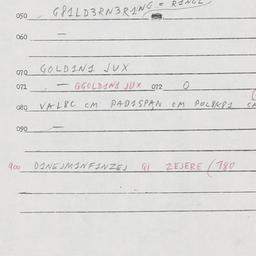 050 G81LD3RN3R1NG = R1NGL
060 —
070 GOLD1N1 JUX
071 — GGOLD1N1 JUX 072 0
080 VAL8C CM PAD1SPAN CM POL8KP1
090 —
900 D1NEJM1NF1NZEJ Q1 ZEJERE (780